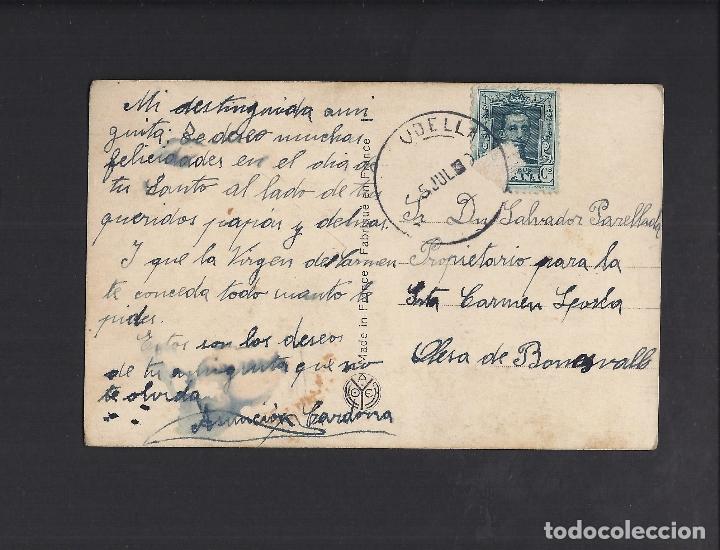 Mi destinguida ami
guita; Se deseo muchas
felicidades en el dia de
tu Santo al lado de tus
queridos papas y demas.
I que la Virgen del Carmen
te conceda todo cuanto le
pides.
Estos son los deseos
de tu amiguita que no
te olvida
Asunción Cardona
Made in France - Fabriqué en France
UDELLA
5 JUL
Cs
Sr. Dn. Salvador Parellada
Propietario para la
Srta Carmen
Olesa de Bonesvalls
todocoleccion